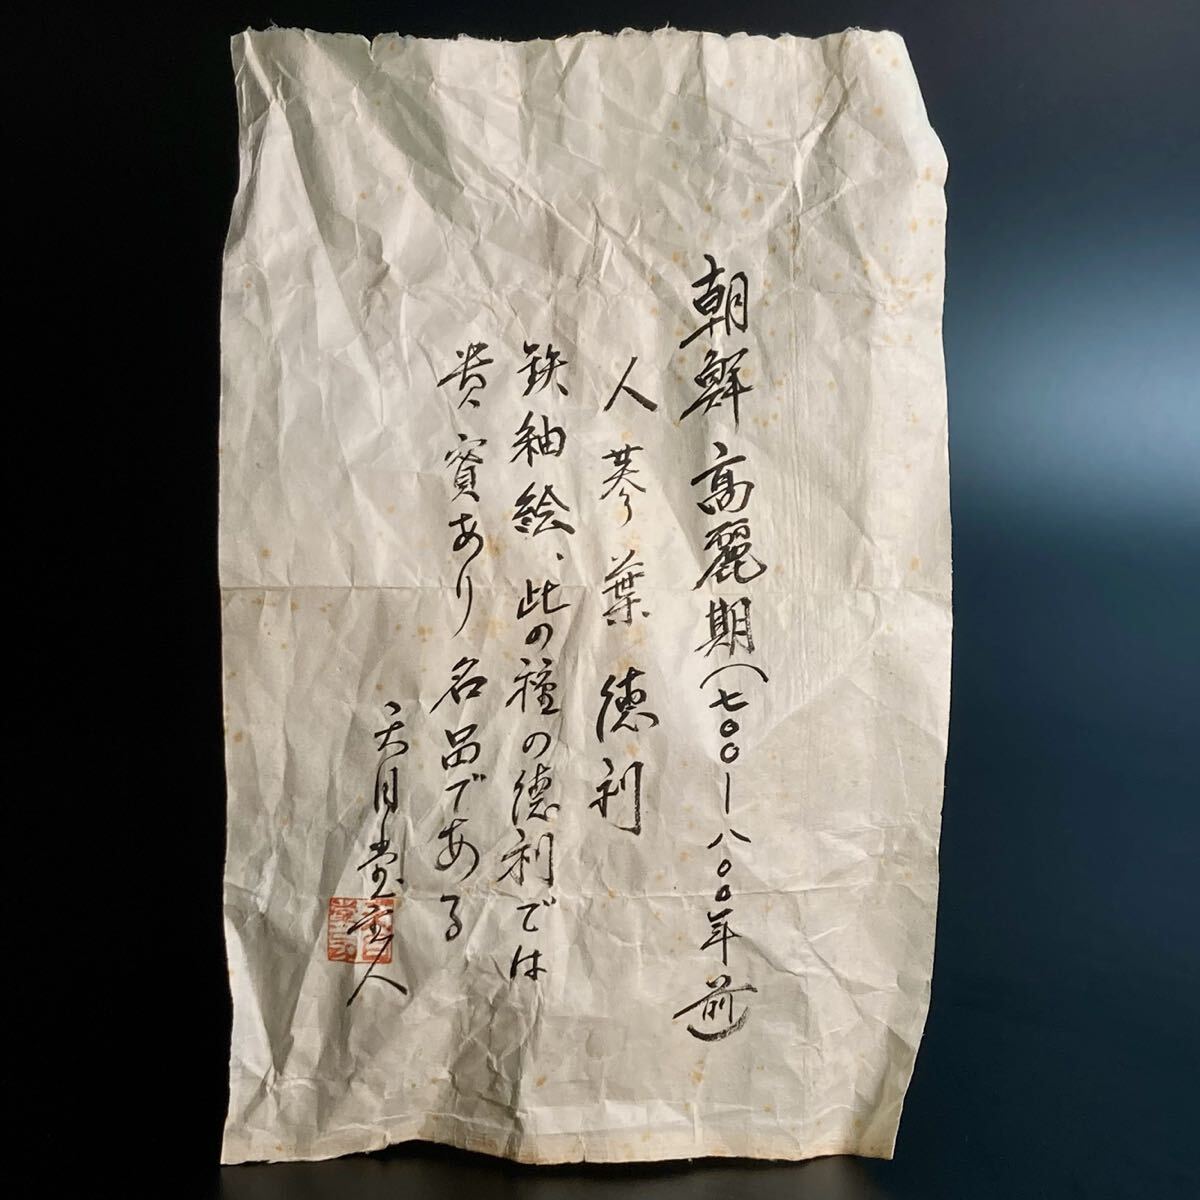 朝鮮高麗期(七〇〇ー八〇〇年前)
人蔘葉徳利
鉄釉絵、此の種の徳利では
貴賓あり名品である
天目堂主人